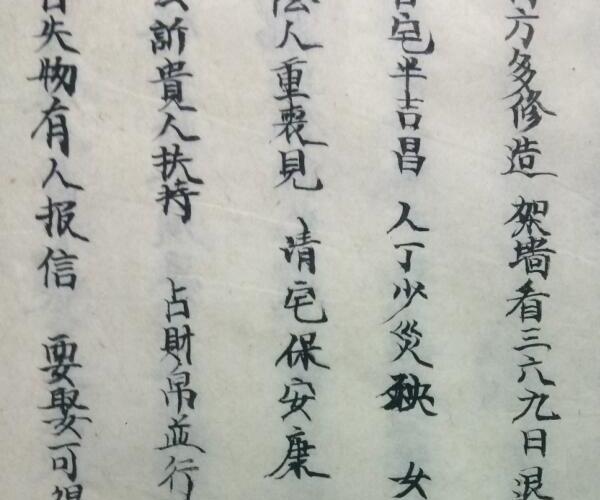 方多修造 架墙看三六九日退
宅半吉昌 人丁少災殃 女
人重喪見 清宅保安康
訴貴人扶持 占財帛並行
失物有人报信 要娶可得